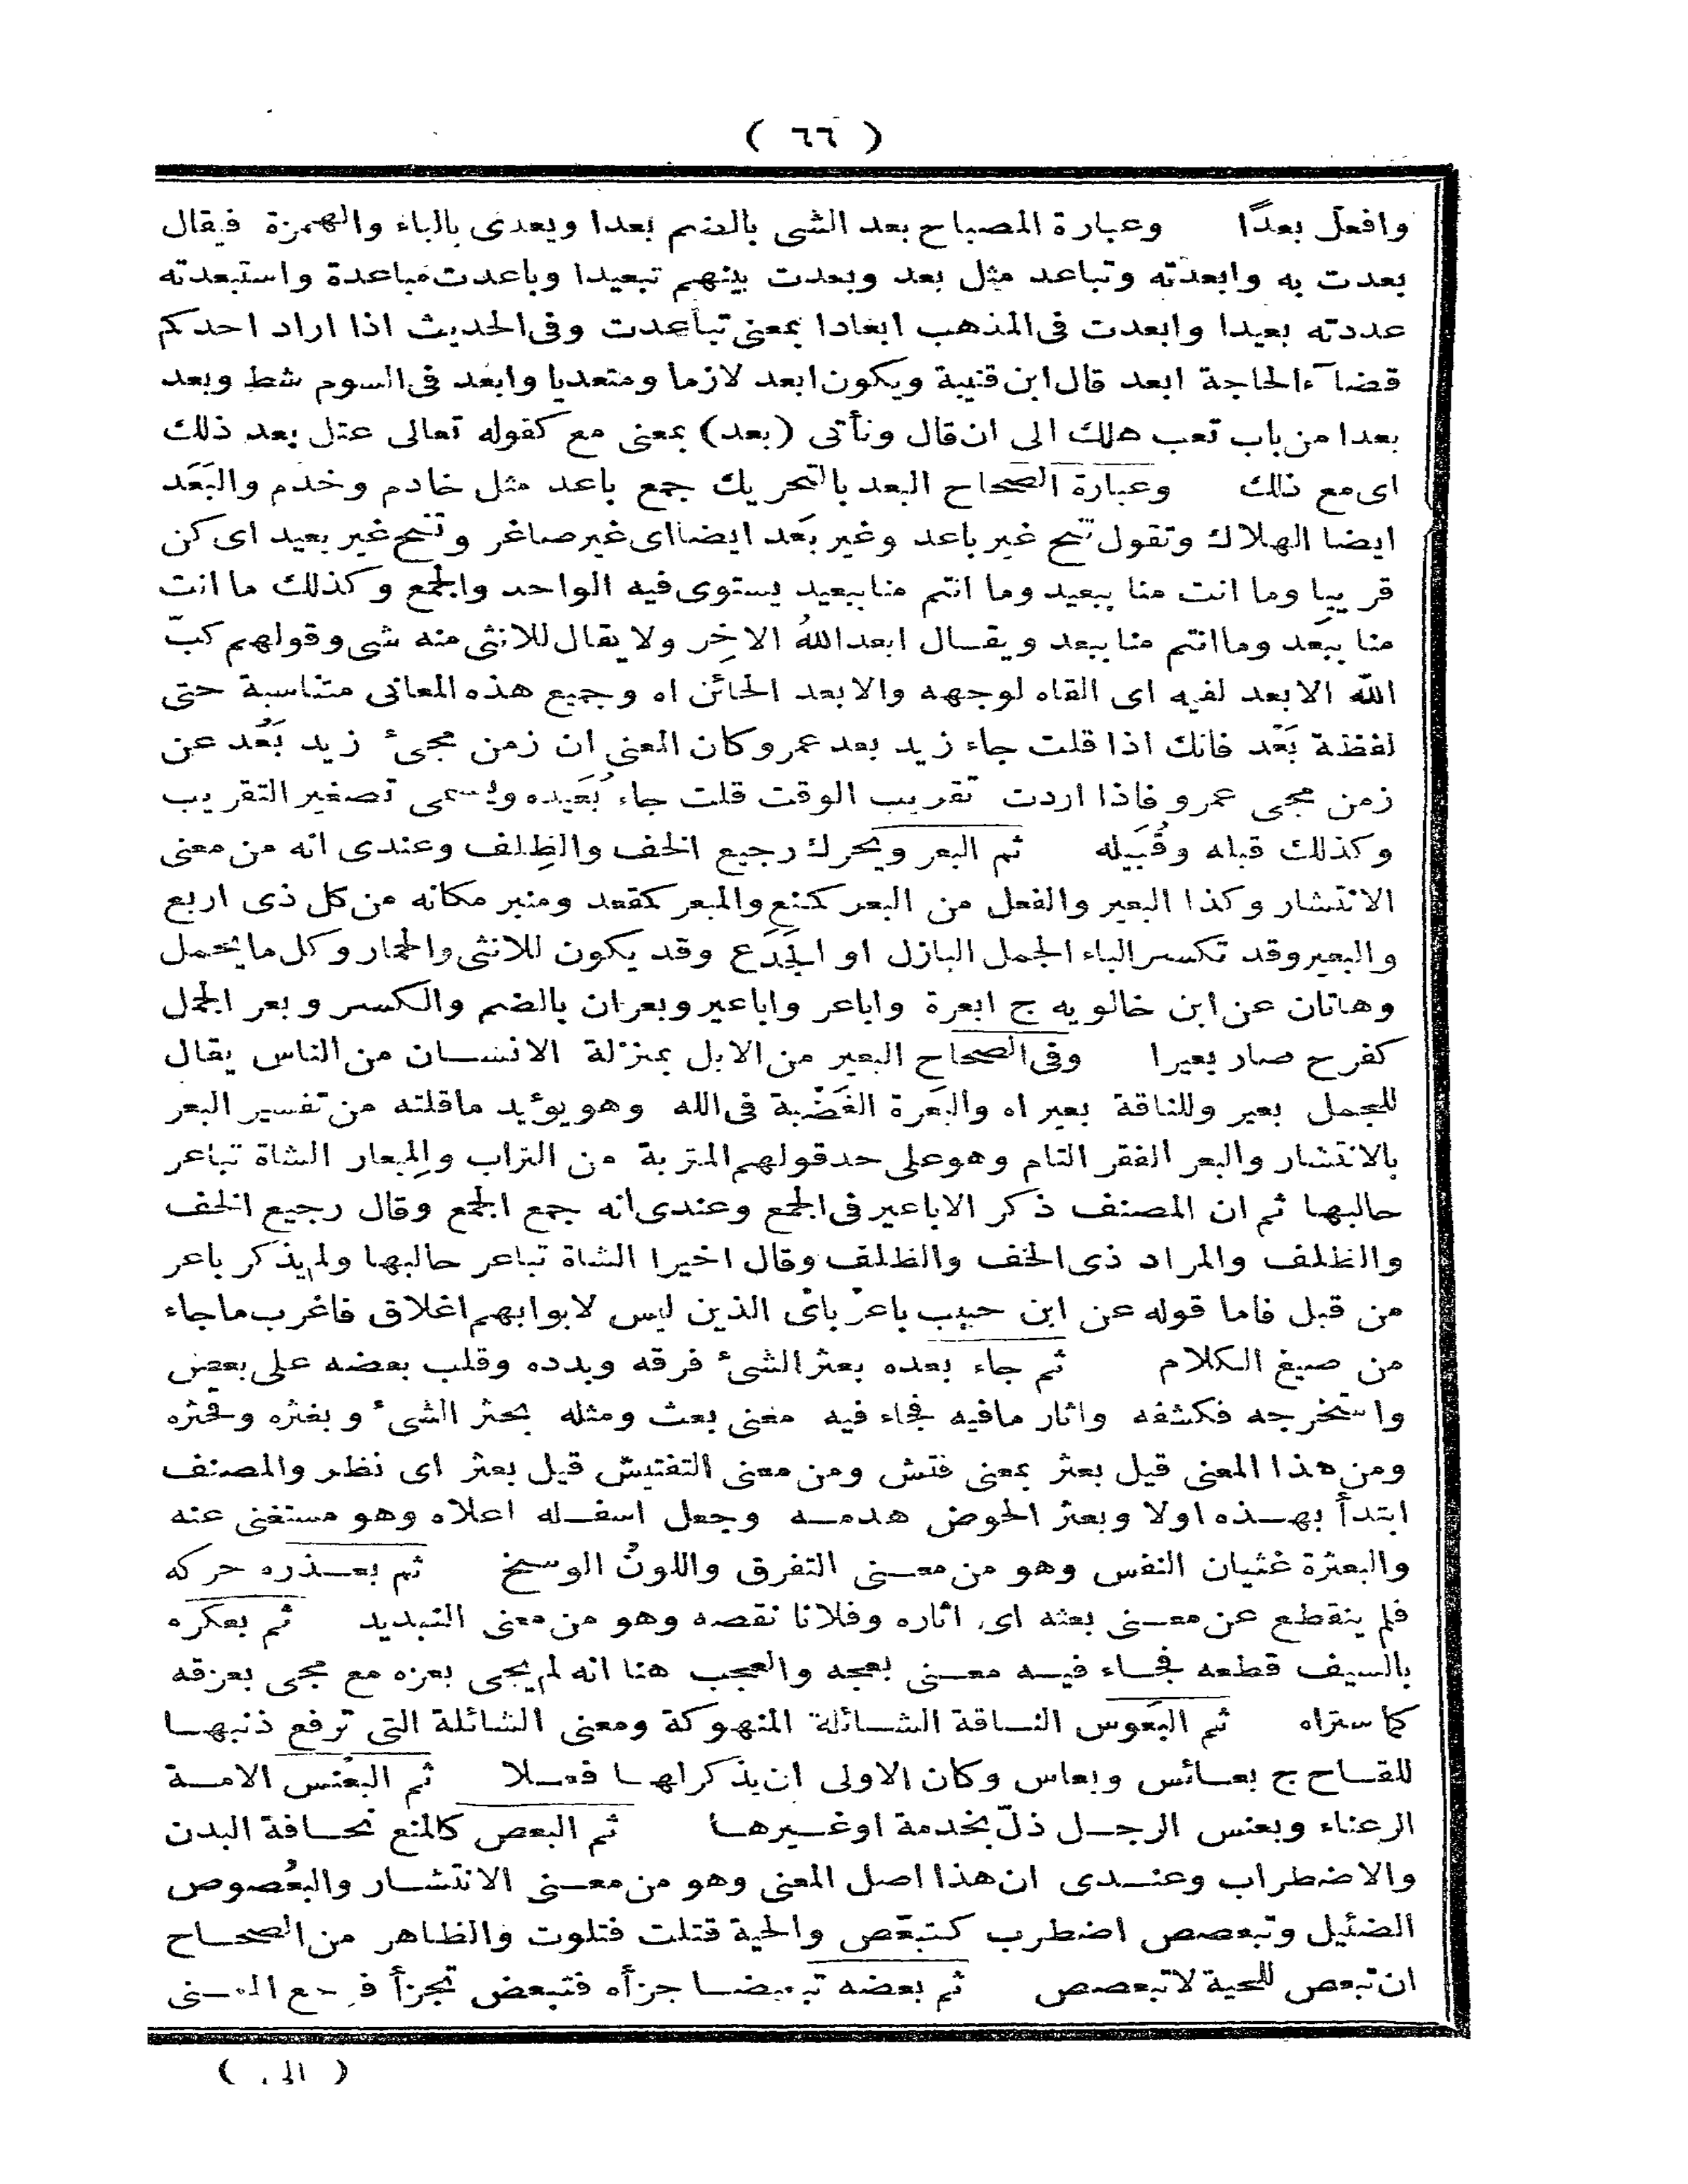 ( ٦٦ )
وافعل بعدًا وعبارة المصباح بعد الشى بالضم بعدا ويعدى بالباء والهمزة فيقال
بعدت به وابعدته وتباعد مثل بعد وبعدت بينهم تبعيدا وباعدت مباعدة واستبعدته
عددته بعيدا وابعدت فى المذهب ابعادا بمعنى تباعدت وفى الحديث اذا اراد احدكم
قضآء الحاجة ابعد قال ابن قتيبة ويكون ابعد لازما ومتعديا وابعد فى السوم شط وبعد
بعدا من باب تعب هلك الى ان قال وتأتى (بعد) بمعنى مع كقوله تعالى عتل بعد ذلك
اى مع ذلك وعبارة الصحاح البعد بالتحريك جمع باعد مثل خادم وخدم والبَعَد
ايضا الهلاك وتقول تنح غير باعد وغير بَعَد ايضا اى غير صاغر وتنح غير بعيد اى كن
قريبا وما انت منا ببعيد وما انتم منا ببعيد يستوى فيه الواحد والجمع وكذلك ما انت
منا ببَعد وما انتم منا ببعد ويقال ابعد اللهُ الاخِر ولا يقال للانثى منه شى وقولهم كبّ
اللّه الابعد لفيه اى القاه لوجهه والابعد الحائن اه وجميع هذه المعانى متناسبة حتى
لفظة بَعْد فانك اذا قلت جاء زيد بعد عمرو كان المعنى ان زمن مجىء زيد بَعُد عن
زمن مجى عمرو فاذا اردت تقريب الوقت قلت جاء بُعَيده ويسمى تصغير التقريب
وكذلك قبله وقُبَيله ثم البعر ويحرك رجيع الخف والظِلف وعندى انه من معنى
الانتشار وكذا البعير والفعل من البعر كمنع والمبعر كمقعد ومنبر مكانه من كل ذى اربع
والبعير وقد تكسر الباء الجمل البازل او الجَذَع وقد يكون للانثى والحمار وكل ما يحمل
وهاتان عن ابن خالويه ج ابعرة واباعر واباعير وبعران بالضم والكسر وبعر الجمل
كفرح صار بعيرا وفى الصحاح البعير من الابل بمنزلة الانسان من الناس يقال
للجمل بعير وللناقة بعير اه والبَعرة الغَضْبة فى الله وهو يؤيد ما قلته من تفسير البعر
بالانتشار والبعر الفقر التام وهو على حد قولهم المتربة من التراب والمِبعار الشاة تباعر
حالبها ثم ان المصنف ذكر الاباعير فى الجمع وعندى انه جمع الجمع وقال رجيع الخف
والظلف والمراد ذى الخف والظلف وقال اخيرا الشاة تباعر حالبها ولم يذكر باعر
من قبل فاما قوله عن ابن حبيب باعر باى الذين ليس لابوابهم اغلاق فاغرب ما جاء
من صيغ الكلام ثم جاء بعده بعثر الشىء فرقه وبدده وقلب بعضه على بعض
واستخرجه فكشفه واثار مافيه فجاء فيه معنى بعث ومثله بحثر الشىء وبغثره وقحثره
ومن هذا المعنى قيل بعثر بمعنى فتش ومن معنى التفتيش قيل بعثر اى نظر والمصنف
ابتدأ بهذه اولا وبعثر الحوض هدمه وجعل اسفله اعلاه وهو مستغنى عنه
والبعثرة غثيان النفس وهو من معنى التفرق واللونُ الوسخ ثم بعذره حركه
فلم ينقطع عن معنى بعثه اى اثاره وفلانا نقصه وهو من معنى التبديد ثم بعكره
بالسيف قطعه فجاء فيه معنى بعجه والعجب هنا انه لم يجى بعزه مع مجى بعزقه
كما ستراه ثم البَعوس الناقة الشائلة المنهوكة ومعنى الشائلة التى ترفع ذنبها
للقاح ج بعائس وبعاس وكان الاولى ان يذكر لها فعلا ثم البعنس الامة
الرعناء وبعنس الرجل ذلّ بخدمة او غيرها ثم البعص كالمنع نحافة البدن
والاضطراب وعندى ان هذا اصل المعنى وهو من معنى الانتشار والبُعصوص
الضئيل وتبعصص اضطرب كتبعّص والحية قتلت فتلوت والظاهر من الصحاح
ان تبعص للحية لا تبعصص ثم بعضه تبعيضا جزأه فتبعض تجزأ فرجع المعنى
( الى )